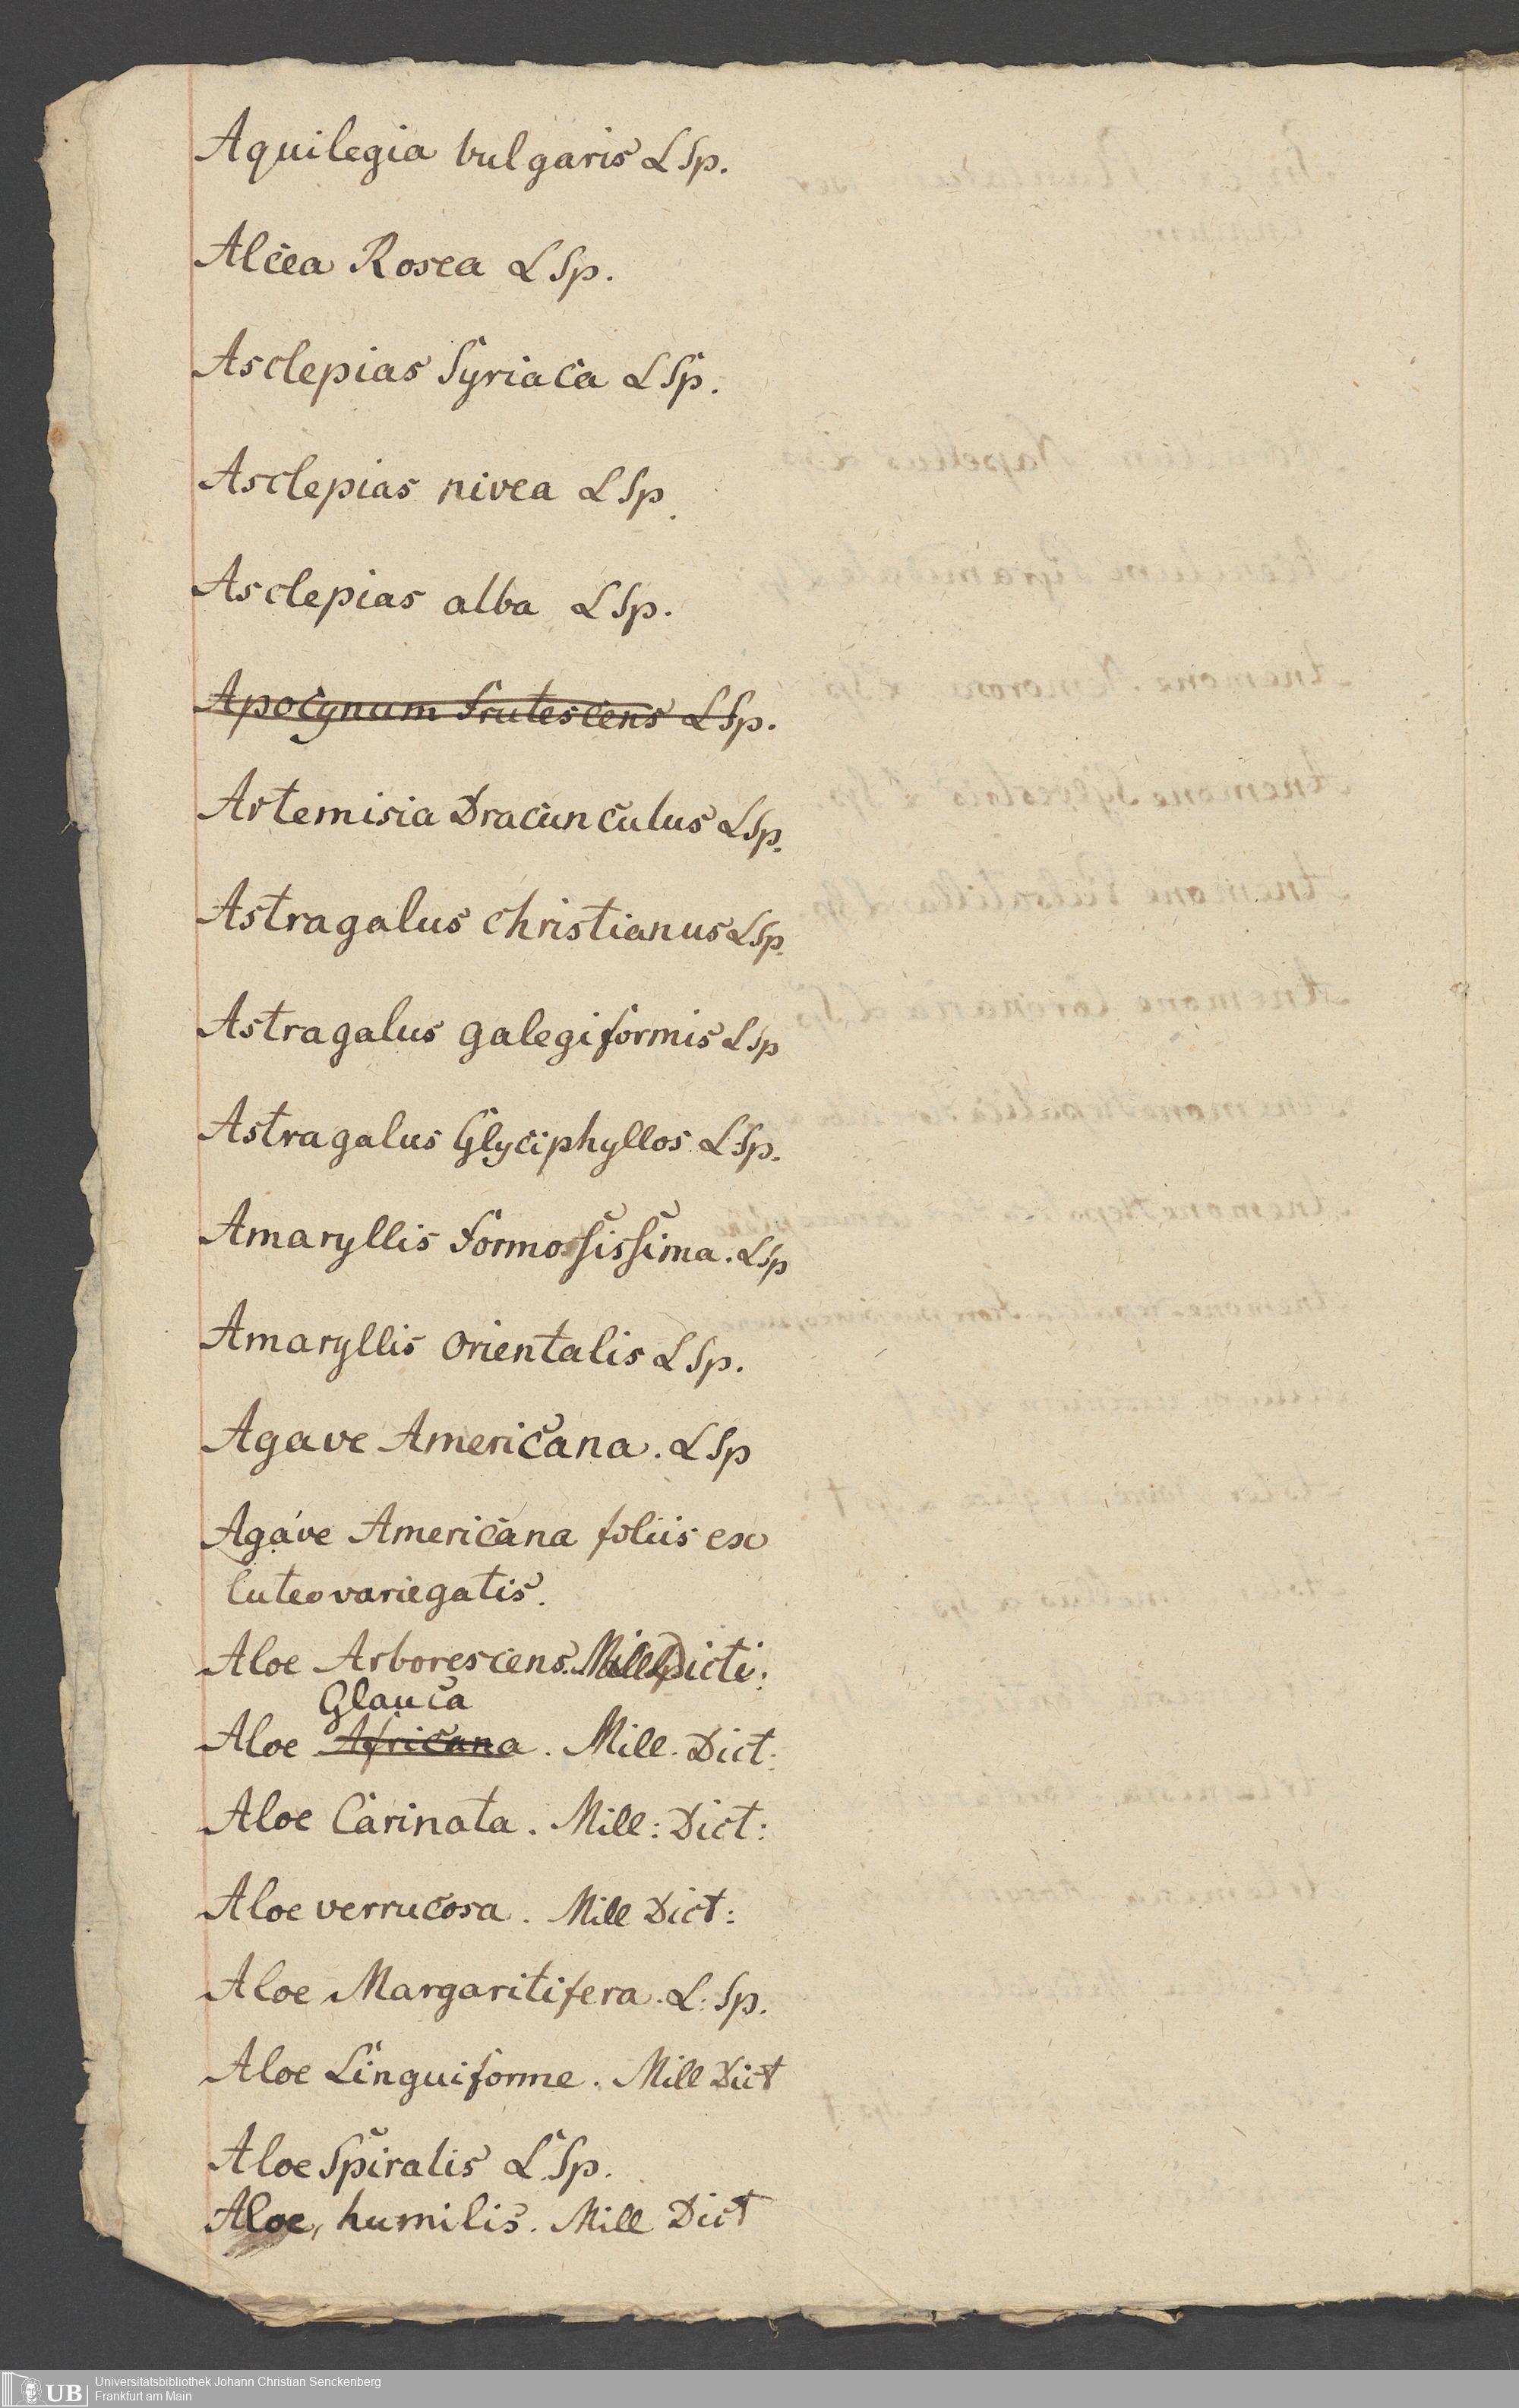 Aquilegia vulgaris L Sp.
Alcea Rosea L Sp.
Asclepias Syriaca L Sp.
Asclepias nivea L Sp.
Asclepias alba L Sp.
Apocynum frutescens L Sp.
Artemisia Dracunculus L Sp.
Astragalus christianus L Sp.
Astragalus galegiformis L Sp
Astragalus Glyciphyllos L Sp.
Amaryllis formosissima. L Sp
Amaryllis orientalis L Sp.
Agave Americana. L Sp
Agave Americana foliis ex
luteo variegatis.
Aloe Arborescens. Mill Dicti:
Glauca
Aloe Africana. Mill. Dict:
Aloe Carinata. Mill: Dict:
Aloe verrucosa. Mill Dict:
Aloe Margaritifera. L: Sp.
Aloe Linguiforme. Mill Dict
Aloe Spiralis L Sp.
Aloe, humilis. Mill Dict
UB
Universitätsbibliothek Johann Christian Senckenberg
Frankfurt am Main